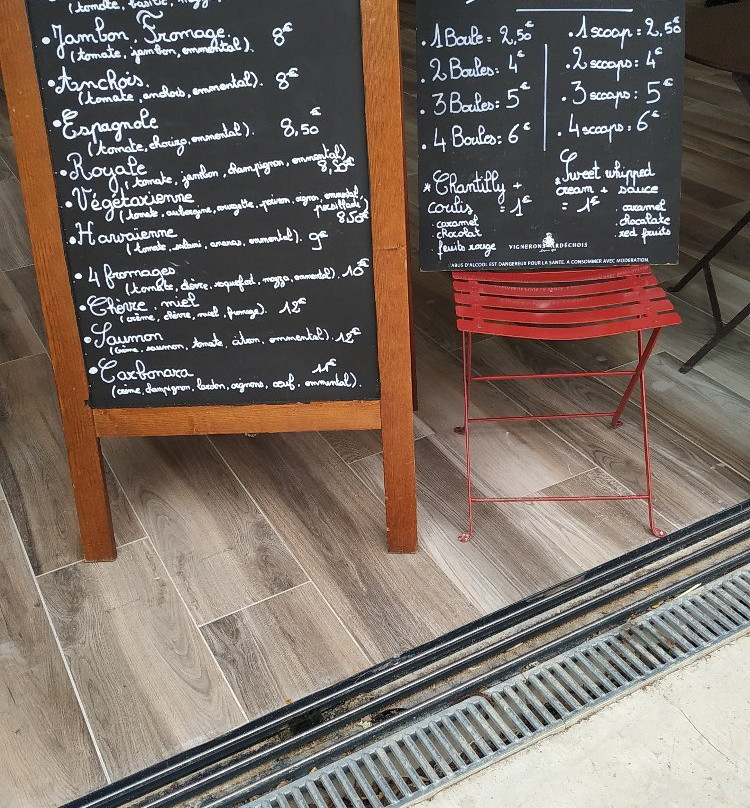 (tomate, basilic, mozza
• Jambon, Fromage
(tomate, jambon, emmental). 8€
• Anchois.
(tomate, anchois, emmental). 8€
• Espagnole
(tomate, chorizo, emmental). 8,50€
• Royale
(tomate, jambon, champignon, emmental)
8,50€
• Végétarienne
(tomate, aubergine, courgette, poivron, oignon, emmental,
persillade)
8,50€
• Hawaienne
(tomate, salami, ananas, emmental). 9€
• 4 fromages
(tomate, chèvre, roquefort, mozza, emmental). 10€
• Chèvre miel
(crème, chèvre, miel, fromage). 12€
• Saumon
(crème, saumon, tomate, citron, emmental). 12€
• Carbonara 11€
(crème, champignon, lardon, oignons, oeuf, emmental).
. 1 Boule = 2,50€
. 2 Boules: 4€
. 3 Boules: 5€
. 4 Boules: 6€
* Chantilly +
coulis = 1€
caramel
chocolat
fruits rouge
. 1 scoop = 2,50€
. 2 scoops: 4€
. 3 scoops: 5€
. 4 scoops: 6€
* Sweet whipped
cream + sauce
= 1€ caramel
chocalate
red fruits
VIGNERONS ARDÉCHOIS
L'ABUS D'ALCOOL EST DANGEREUX POUR LA SANTÉ. A CONSOMMER AVEC MODÉRATION.